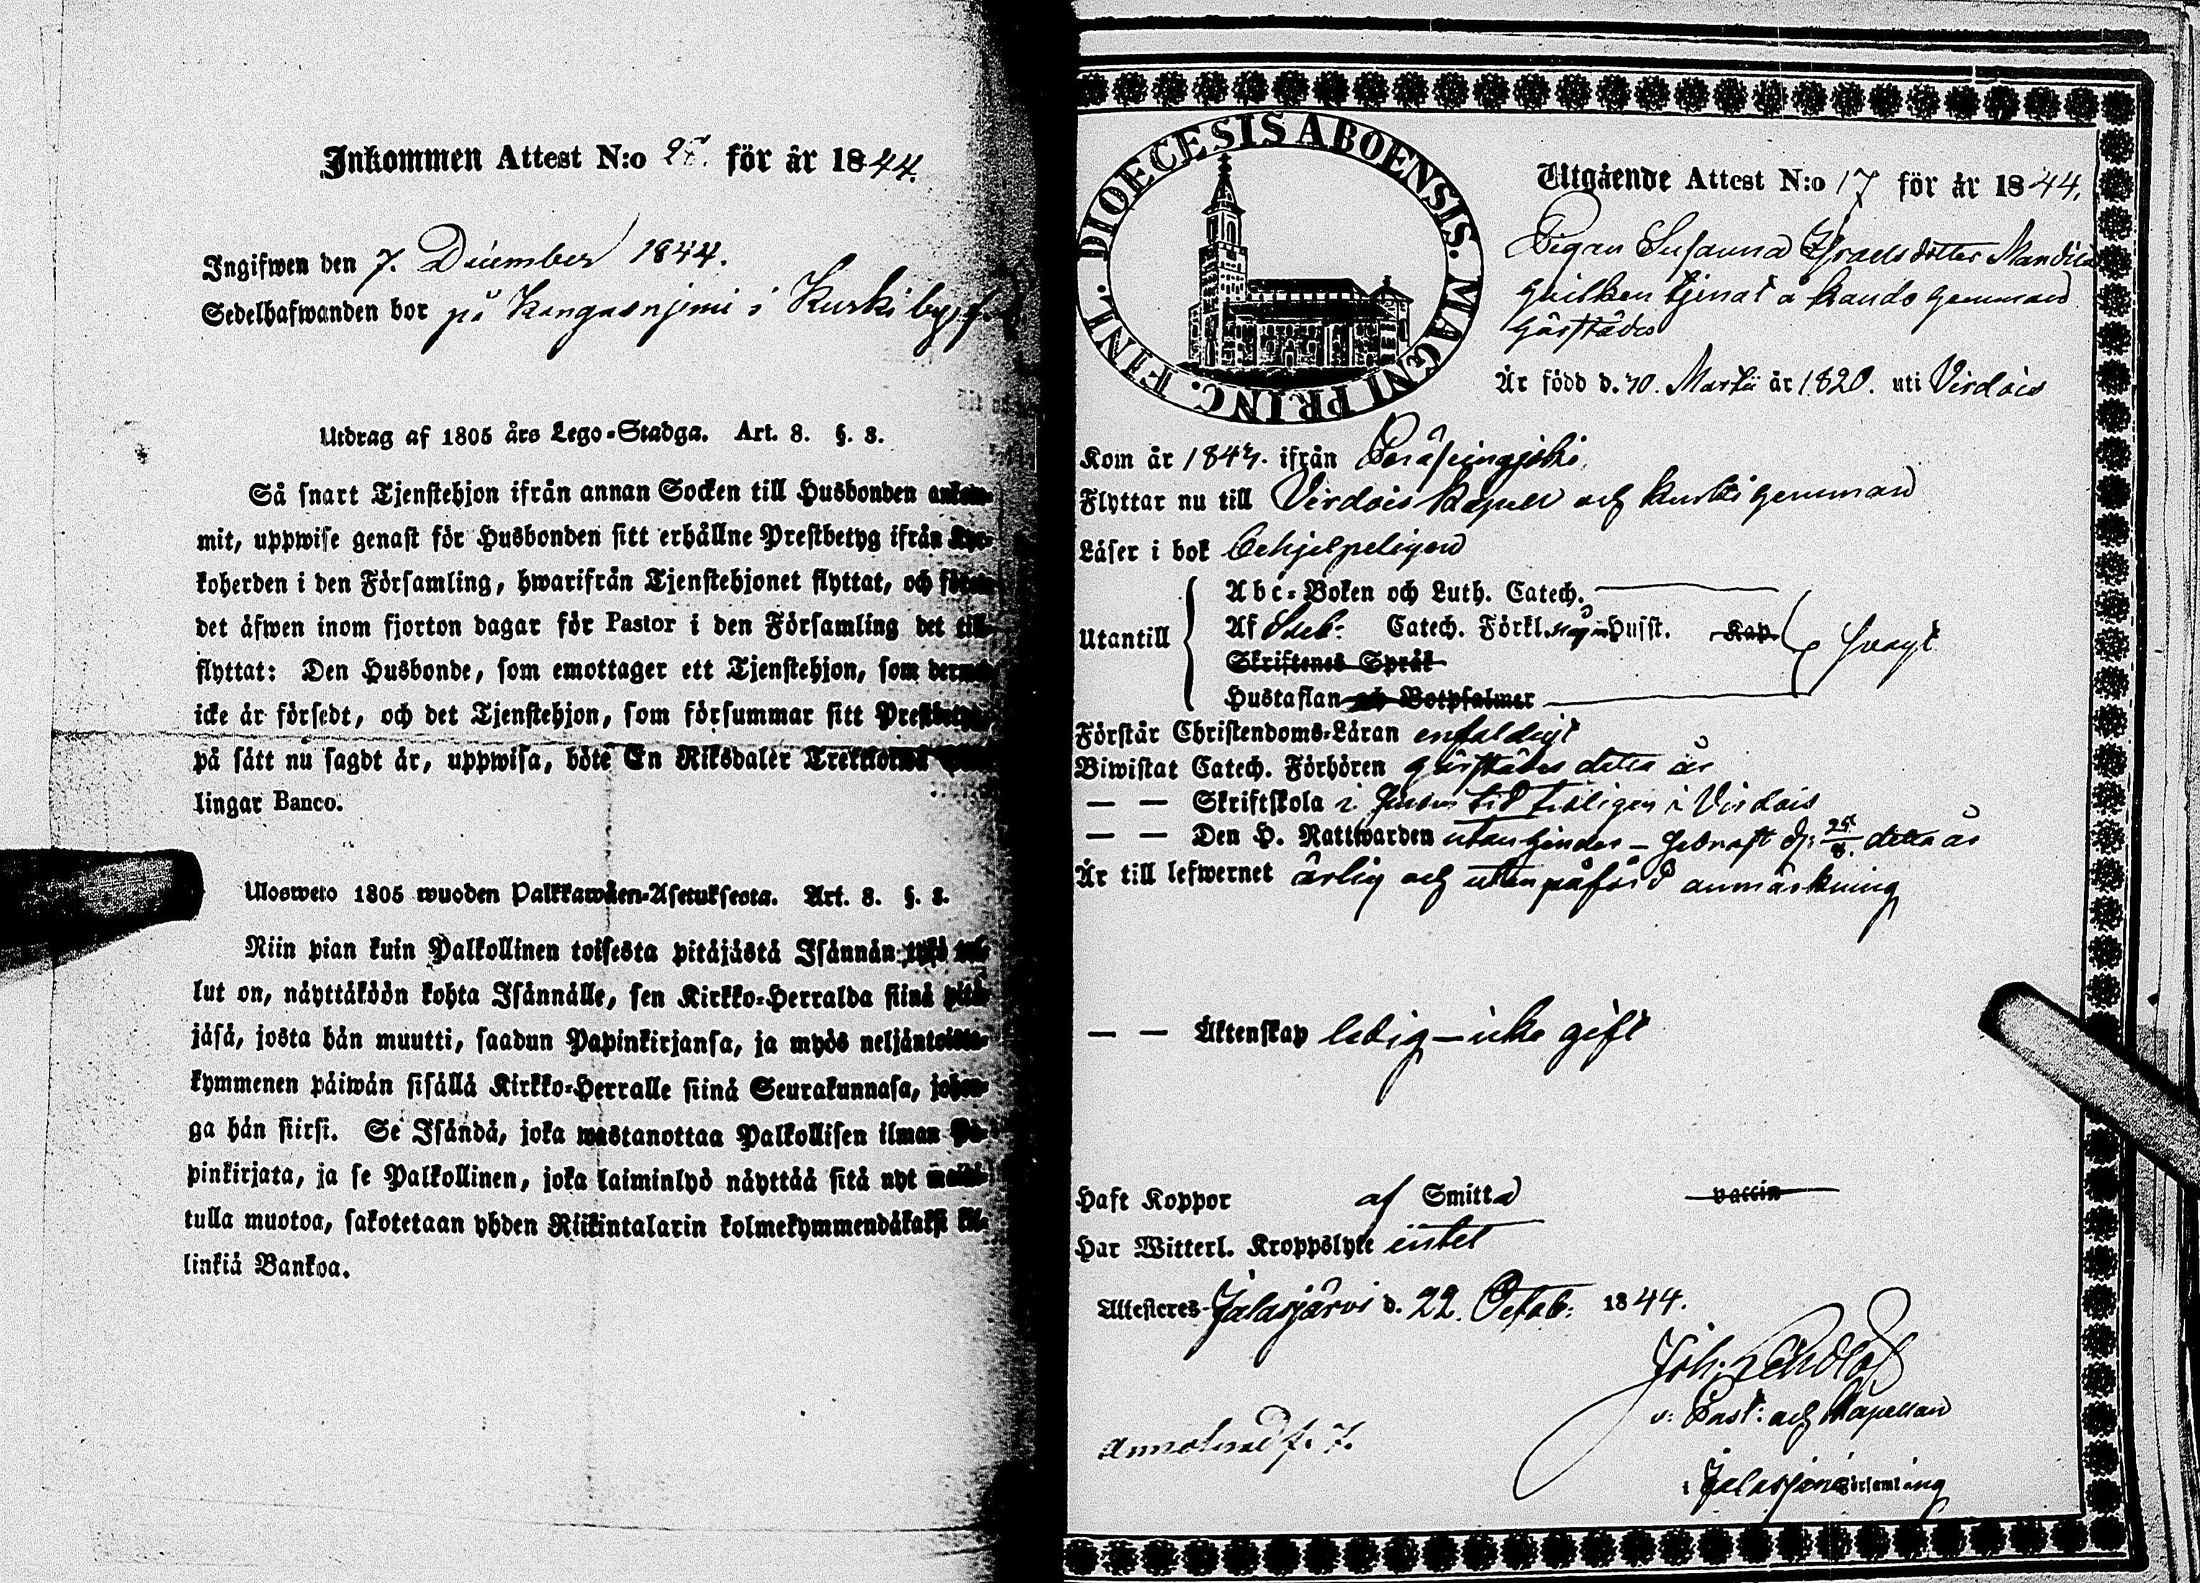 Inkommen Attest N:o för år 1844.
Ingifwen den 7. December 1844.
Sedelhafwanden bor på Kangasnjemi i Kurki by
Utdrag af 1805 års Lego-Stadga. Art. 8. §. 8.
Så snart Tjenstehjon ifrån annan Socken till Husbonden ankom-
mit, uppwise genast för Husbonden sitt erhållne Prestbetyg ifrån Kyr-
koherden i den Församling, hwarifrån Tjenstehjonet flyttat, och
det äfwen inom fjorton dagar för Pastor i den Församling det till-
flyttat: Den Husbonde, som emottager ett Tjenstehjon, som
icke är försedt, och det Tjenstehjon, som försummar sitt Prestbetyg,
på sätt nu sagdt är, uppwisa, böte En Riksdaler Trettiotwå
lingar Banco.
Ulosweto 1805 wuoden Palkkawäen-Asetuksesta. Art. 8. §. 8.
Niin pian kuin Palkollinen toisesta pitäjästä Isännän tykö tul-
lut on, näyttäköön kohta Isännälle, sen Kirkko-Herralda siinä pitä-
jäsä, josta hän muutti, saadun Papinkirjansa, ja myös neljäntoista-
kymmenen päiwän sisällä Kirkko-Herralle siinä Seurakunnasa, johon-
ga hän siirsi. Se Isändä, joka wastanottaa Palkollisen ilman Pa-
pinkirjata, ja se Palkollinen, joka laiminlyö näyttää sitä nyt
tulla muotoa, sakotetaan yhden Riikintalarin kolmekymmendäkaksi kil-
linkiä Bankoa.
DIOECESIS ABOENSIS. MAGNI PRINC. FINL.
Utgående Attest N:o 17 för år 1844.
Pigan Susanna Israelsdotter Mandila
hvilken tjenat å Kauds hemmand
härstädes
Är född d. 10. Martii år 1820. uti Virdois
Kom år 184 ifrån Peräseinäjoki
Flyttar nu till Virdois Kapell och Kurki hemmand
Läser i bok behjelpeligen
Utantill
Abc-Boken och Luth. Catech.
Af Sveb. Catech. Förkl. någon Husst. Kap. svagt
Skriftenes Språk
Hustaflan och Botpsalmer
Förstår Christendoms-Läran enfaldigt
Biwistat Catech. Förhören härstädes detta år
— — Skriftskola i sinom tid troligen i Virdois
— — Den H. Nattwarden utan hinder – sednast d. 25/8. detta år
Är till lefwernet ärlig och utan påförd anmärkning
— — Äktenskap ledig – icke gift
Haft Koppor af Smitta vaccin
Har Witterl. Kroppslyte intet
Attesteres Jalasjärvi d. 22. Octob. 1844.
v: Past: och Kapellan
i Jalasjärvi församling
Annoterad p. 7.